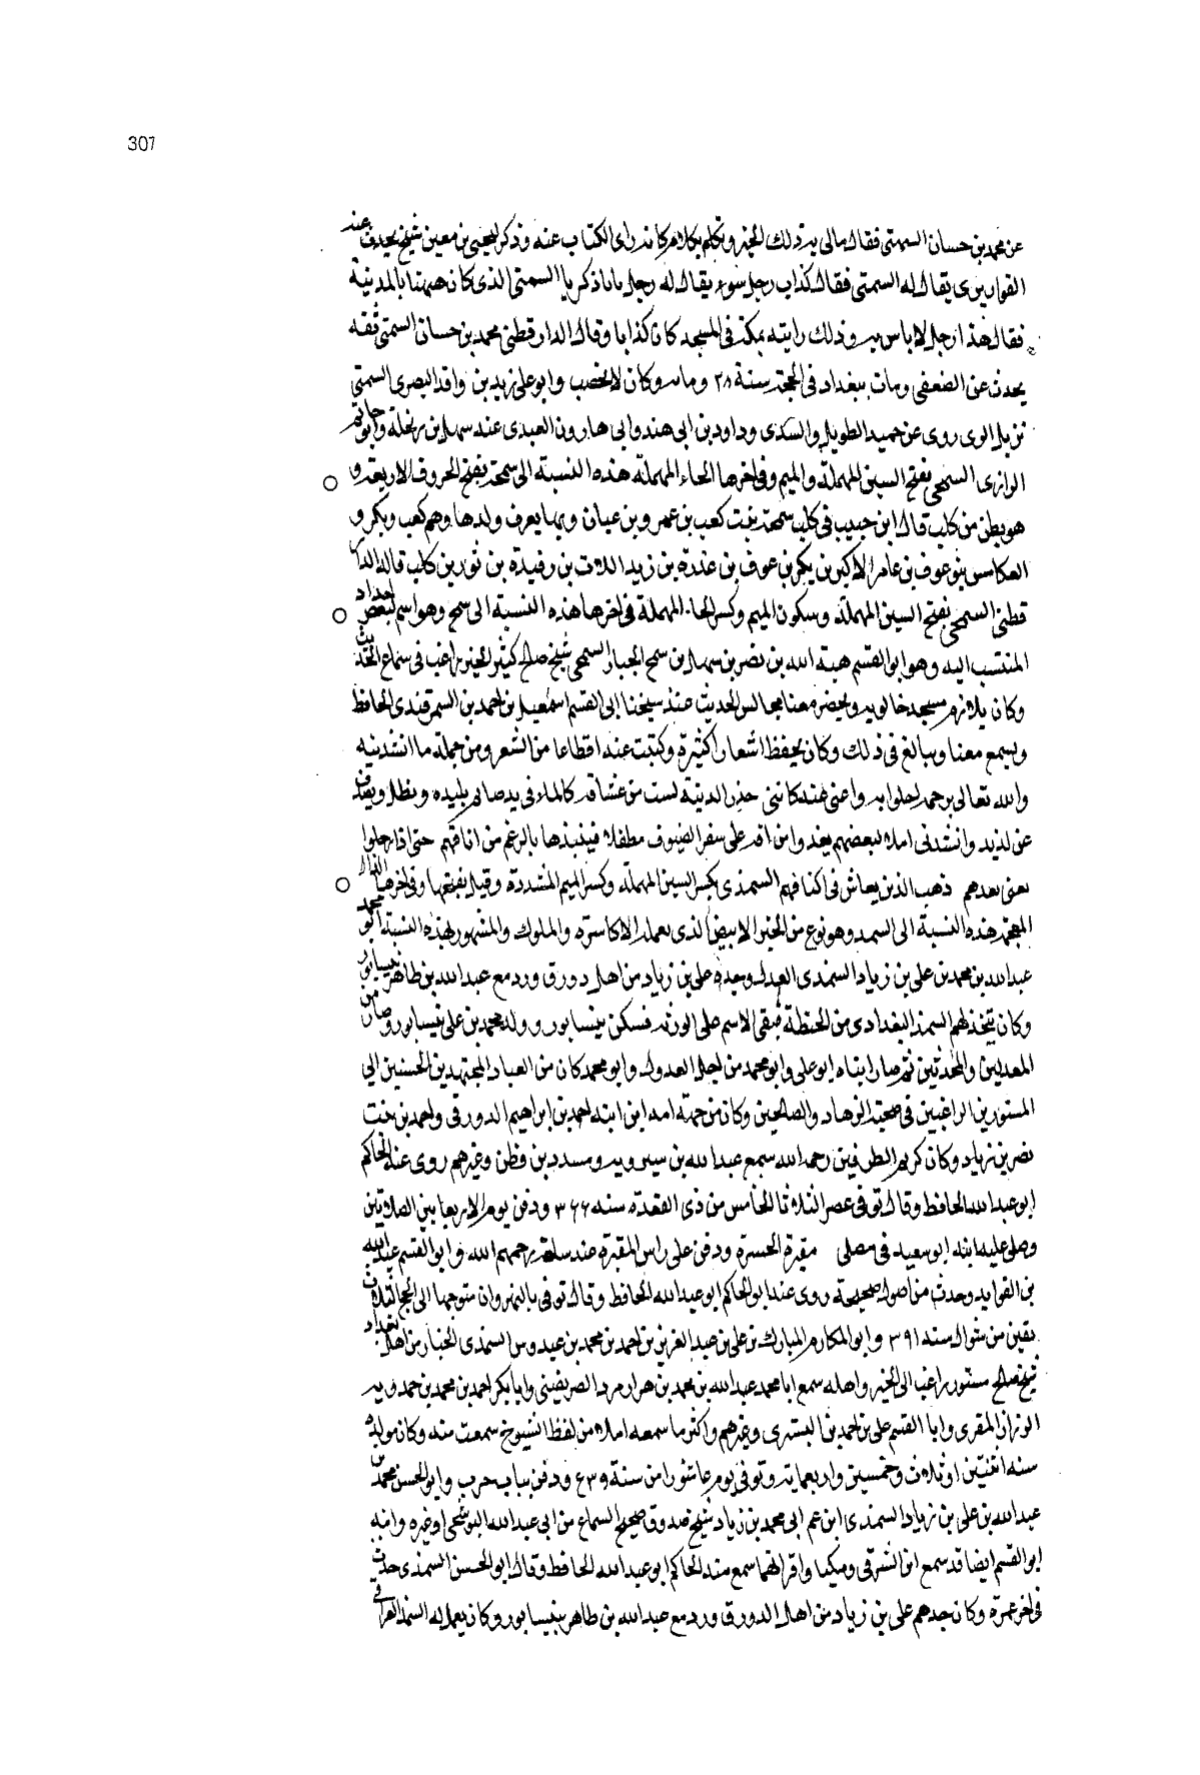 307
عن محمد بن حسان السمتى فقال مالى بد ذلك الخبر وتكلم بكلام كانه راى الكتاب عنه وذكر ليحيى بن معين شيخ يحدث عند
القواريرى يقال له السمتى فقال كذاب رجل سوء يقال له رجل يابا زكريا السمتى الذى كان ههنا بالمدينة
فقال هذا رجل لا باس به وذلك رايته فى المسجد كان كذابا وقال الدارقطنى محمد بن حسان السمتى ثقه
يحدث عن الضعفى ومات ببغداد فى الحجة سنة ٢٨ وكان لا يخضب وابو على زيد بن واقد البصرى السمتى
نزيل الرى روى عن حميد الطويل والسدى وداود بن ابى هند وابى هارون العبدى عنه سهل بن زنجلة وابو حاتم
الرازى السمحى بفتح السين المهملة والميم وفى اخرها الحاء المهملة هذه النسبة الى سمحة بفتح الحروف الاربعة و
هو بطن من كلب قال ابن حبيب فى كلب سمحة بنت كعب بن عمرو بن عيان وبها يعرف ولدها وهم كعب وبكر و
العكامس بنو عوف بن عامر الاكبر بن بكر بن عوف بن عذرة بن زيد اللات بن رفيدة بن ثور بن كلب قاله الدار
قطنى السمحى بفتح السين المهملة وسكون الميم وكسر الحاء المهملة فى اخرها هذه النسبة الى سمح وهو اسم لبعض اجداد
المنتسب اليه وهو ابو القسم هبة الله بن نصر بن سهل بن سمح الخباز السمحى شيخ صالح كثير الخير راغب فى سماع الحديث
وكان يلازم مسجد خالويه ويحضر معنا مجالس الحديث عند شيخنا ابى القسم اسمعيل بن احمد بن السمرقندى الحافظ
ويسمع معنا ويبالغ فى ذلك وكان يحفظ اشعارا كثيرة وكتبت عنه اقطاعا من الشعر ومن جملة ما انشدنيه
والله تعالى يرحمه
عن لذيذ وانشدنى املاء لبعضهم
يعنى بعدهم ذهب الذين يعاش فى اكنافهم السمذى بكسر السين المهملة وكسر الميم المشددة وقيل بفتحها وفى اخرها الذال
المعجمة هذه النسبة الى السمد وهو نوع من الخبز الابيض الذى يعمل للاكاسرة والملوك والمشهور بهذه النسبة ابو محمد
عبد الله بن محمد بن على بن زياد السمذى العدل وجده على بن زياد من اهل دورق ورد مع عبد الله بن طاهر نيسابور
وكان يتخذ لهم السمذ البغدادى من الحنطة فبقى الاسم على الورثه فسكن نيسابور وولد محمد بن على بنيسابور وصار من
المعدلين والمحدثين ثم صار ابناه ابو على وابو محمد من اجلة العدول وابو محمد كان من العباد المجتهدين المحسنين الى
المستورين الراغبين فى صحبة الزهاد والصالحين وكان من جهة امه ابن ابنة احمد بن ابراهيم الدورقى واحمد بن بنت
نصر بن زياد وكان كريم الطرفين رحمه الله سمع عبد الله بن شيرويه ومسدد بن قطن وغيرهم روى عنه الحاكم
ابو عبد الله الحافظ وقال توفى عصر الثلاثا الخامس من ذى القعدة سنه ٣٦٦ ودفن يوم الاربعا بين الصلاتين
وصلى عليه ابنه ابو سعيد فى مصلى مقبرة الحسرة ودفن على راس المقبرة عند سلفه رحمهم الله وابو القسم عبد الله
بن الفوايد وحدث من اصول صحيحة روى عنه ابو الحاكم ابو عبد الله الحافظ وقال توفى بالنهروان متوجها الى الحج لثلاث
بقين من شوال سنه ٣٩١ وابو المكارم المبارك بن على بن عبد العزيز بن احمد بن محمد بن عبدوس السمذى الخباز من اهل بغداد
شيخ صالح مستور راغب الى الخير واهله سمع ابا محمد عبد الله بن محمد بن هزارمرد الصريفينى وابا بكر احمد بن محمد بن حمدويه
الوزان المقرى وابا القسم على بن احمد بن البسرى وغيرهم واكثر ما سمعه املاء من لفظ الشيوخ سمعت منه وكان مولده
سنه اثنتين او ثلاث وخمسين واربعماية وتوفى يوم عاشورا من سنة ٥٣٩ ودفن بباب حرب وابو الحسن محمد بن
عبد الله بن على بن زياد السمذى ابن عم ابى محمد بن زياد شيخ صدوق صحيح السماع من ابى عبد الله البوشنجى وغيره وابنه
ابو القسم ايضا قد سمع ابن الشرقى ومكيا واقرانهما سمع منه الحاكم ابو عبد الله الحافظ وقال ابو الحسن السمذى حدث
فى اخر عمره وكان جدهم على بن زياد من اهل الدورق ورد مع عبد الله بن طاهر بنيسابور وكان يعمل له السمذ العراقى